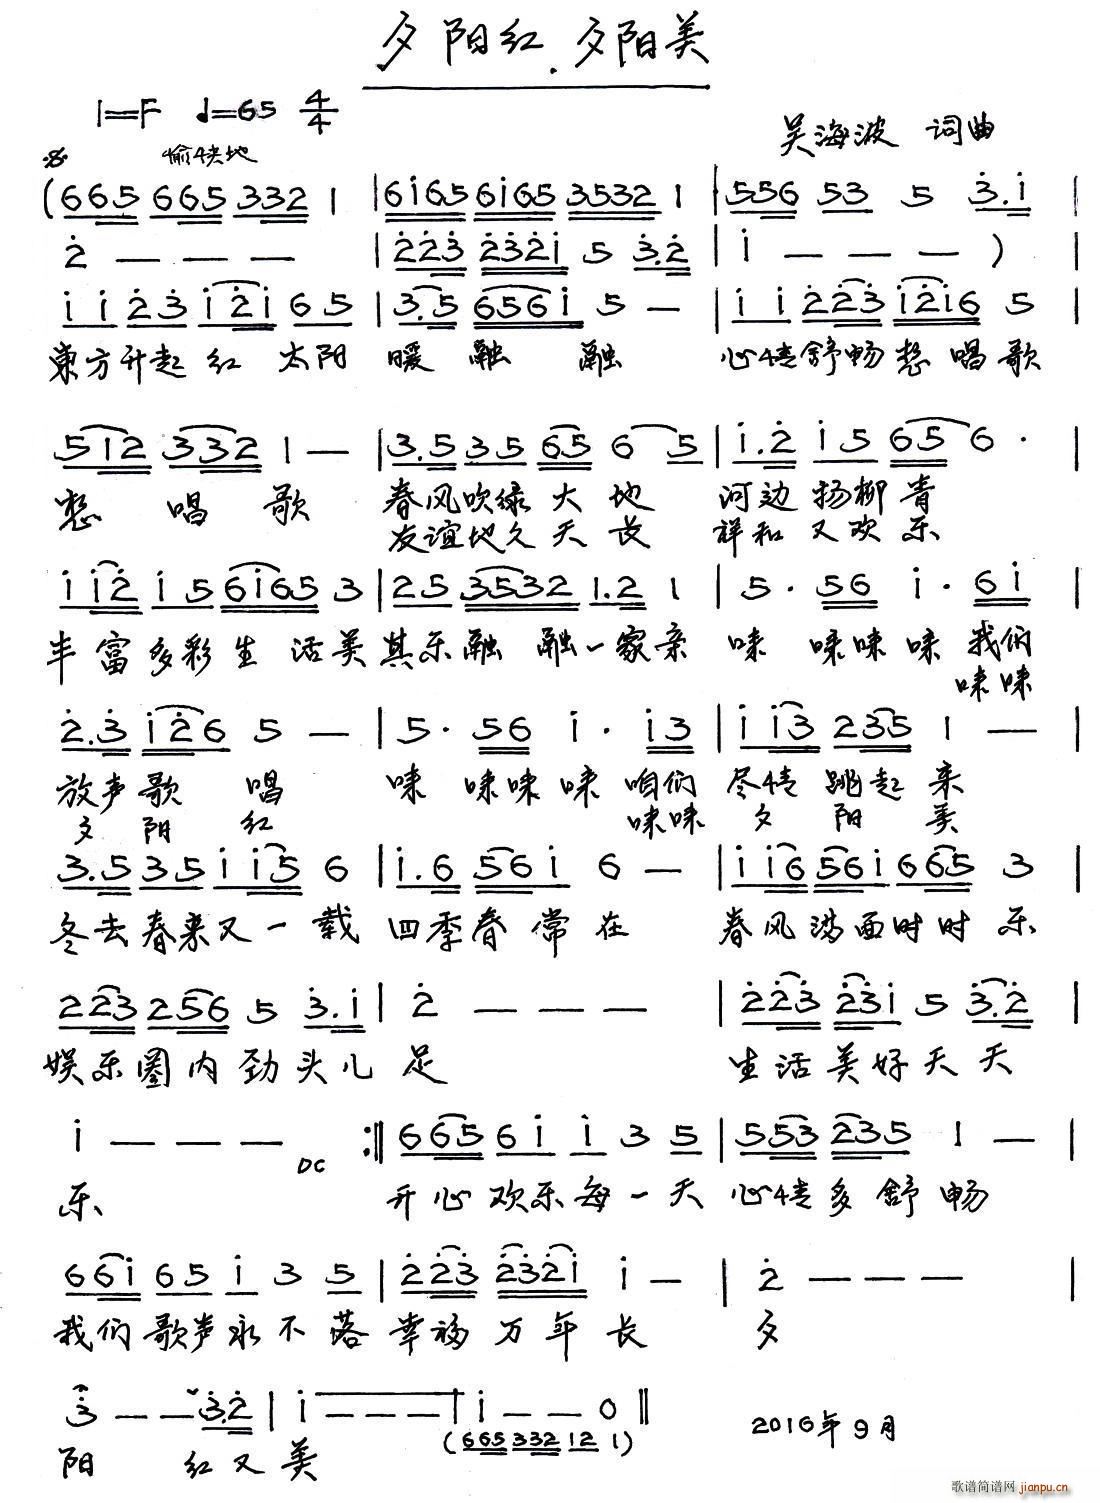 夕阳红.夕阳美
1=F ♩=65 4/4
吴海波 词曲
愉快地
(665 665 332 1 | 6i65 6i65 3532 1 | 556 53 5 3.i |
2 — — — | 223 2321 5 3.2 | i — — — ) |
i i 23 i2i 65 | 3.5 656i 5 — | i i 223 i2i6 5 |
東方升起红太阳 暖融融 心情舒畅想唱歌
512 332 1 — | 3.5 35 65 6 5 | i.2 i5 656 · |
想唱歌 春风吹绿大地 河边扬柳青
友谊地久天长 祥和又欢乐
i i2 i5 6i65 3 | 25 3532 1.2 1 | 5 · 56 i · 6i |
丰富多彩生活美 其乐融融一家亲 咪 咪咪咪我们
咪咪
2.3 i26 5 — | 5 · 56 i · i3 | i i3 235 1 — |
放声歌唱 咪 咪咪咪咱们 尽情跳起来
夕阳红 咪咪 夕阳美
3.5 35 i i5 6 | i.6 56i 6 — | i i6 56i 665 3 |
冬去春来又一载 四季春常在 春风满面时时乐
223 256 5 3.i | 2 — — — | 223 23i 5 3.2 |
娱乐圈内劲头儿足 生活美好天天
i — — — DC :‖ 665 6i i 3 5 | 553 235 1 — |
乐 开心欢乐每一天 心情多舒畅
66i 65 i 3 5 | 223 232i i — | 2 — — — |
我们歌声永不落 幸福万年长 夕
3 — — 3.2 | i — — — | i — — 0 ‖
(665 332 12 1)
2016年9月
阳 红又美
歌谱简谱网
jianpu.cn